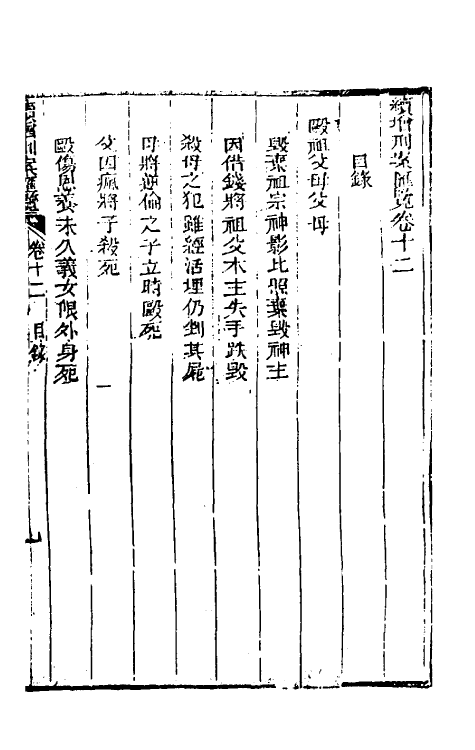 續增刑案匯覽卷十二
目錄
毆祖父母父母
毀棄祖宗神影比照棄毀神主
因借錢將祖父木主失手跌毀
殺母之犯雖經活埋仍剉其屍
母將逆倫之子立時毆死
父因瘋將子殺死
毆傷恩養未久義女限外身死
續增刑案匯覽 卷十二 目錄 一